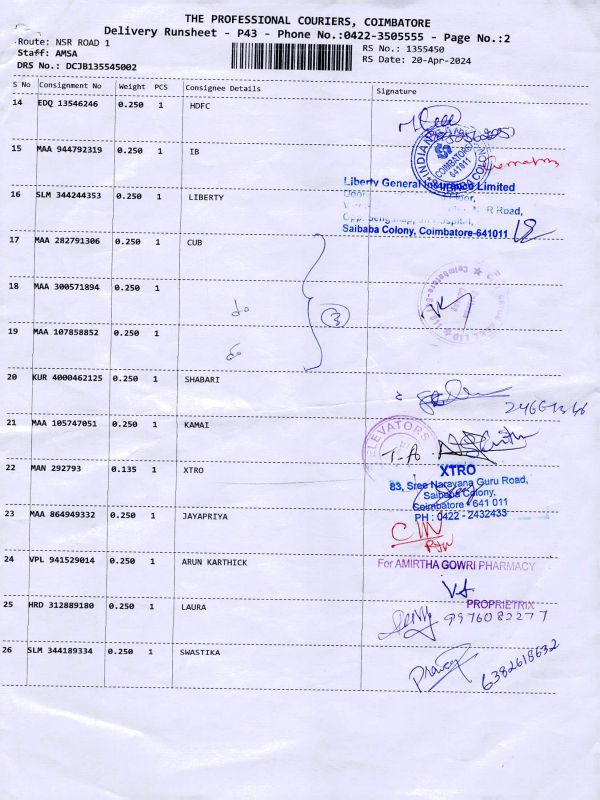 THE PROFESSIONAL COURIERS, COIMBATORE
Delivery Runsheet - P43 - Phone No.:0422-3505555 - Page No.:2
Route: NSR ROAD 1
RS No.: 1355450
Staff: AMSA
RS Date: 20-Apr-2024
DRS No.: DCJB135545002
S No Consignment No Weight PCS Consignee Details Signature
14 EDQ 13546246 0.250 1 HDFC
15 MAA 944792319 0.250 1 IB
INDIAN
COIMBATORE
641011
COLONY
16 SLM 344244353 0.250 1 LIBERTY
Liberty General Insurance Limited
R Road,
Opp. Hospital,
Saibaba Colony, Coimbatore-641011
17 MAA 282791306 0.250 1 CUB
18 MAA 300571894 0.250 1 do
3
19 MAA 107858852 0.250 1 do
20 KUR 4000462125 0.250 1 SHABARI
21 MAA 105747051 0.250 1 KAMAI
ELEVATORS
22 MAN 292793 0.135 1 XTRO
XTRO
83, Sree Narayana Guru Road,
Saibaba Colony,
Coimbatore - 641 011
PH : 0422 - 2432433
23 MAA 864949332 0.250 1 JAYAPRIYA
24 VPL 941529014 0.250 1 ARUN KARTHICK
For AMIRTHA GOWRI PHARMACY
PROPRIETRIX
25 HRD 312889180 0.250 1 LAURA
9976082277
26 SLM 344189334 0.250 1 SWASTIKA
6382618632